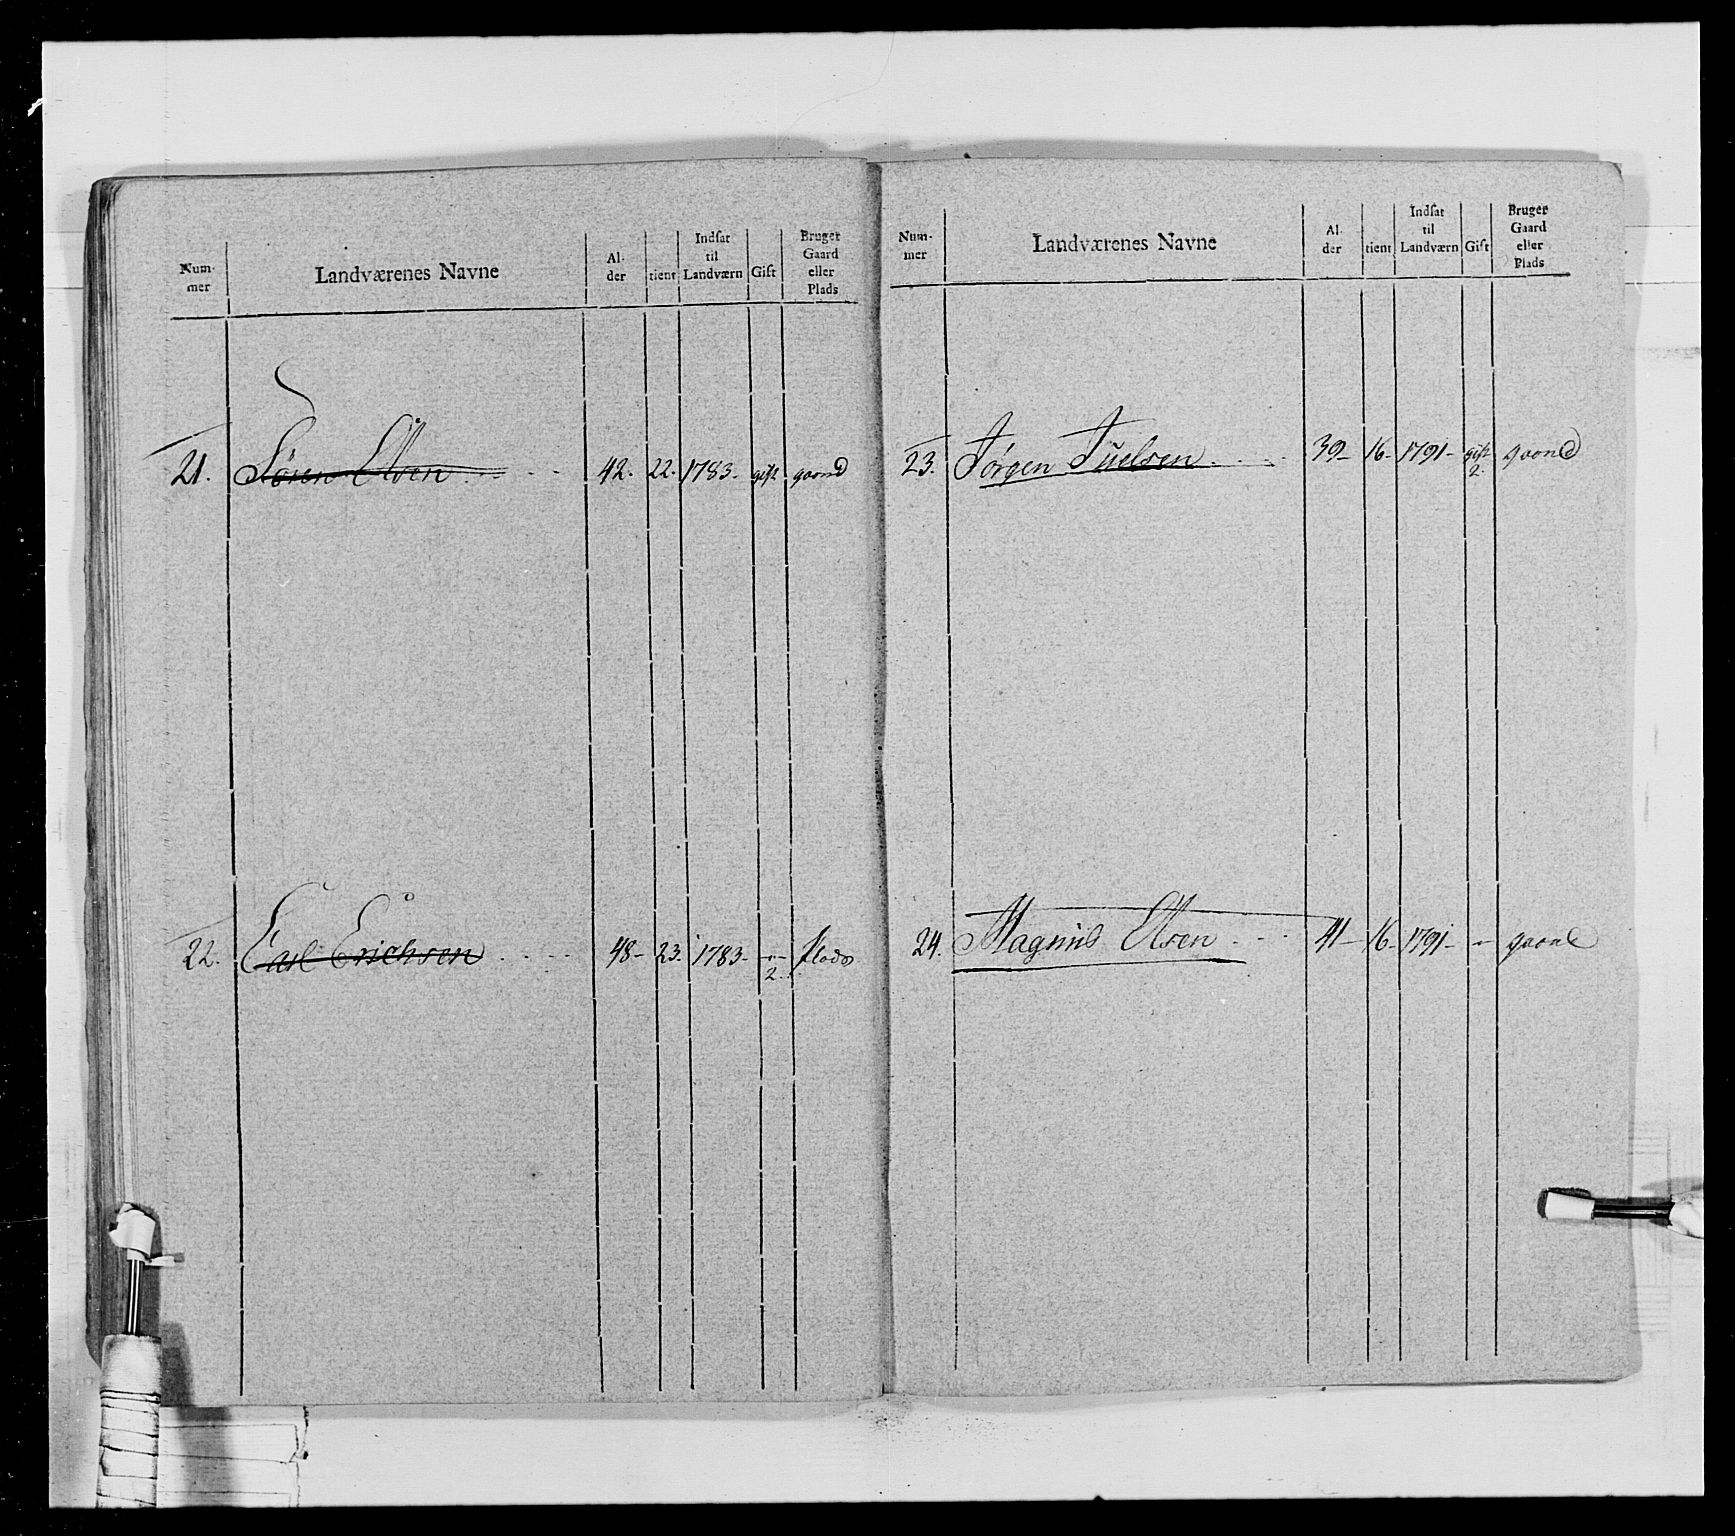 Num-
mer
Landværenes Navne
Al-
der
tient
Indsat
til
Landværn
Gift
Bruger
Gaard
eller
Plads
21. Sören Olsen 42. 22. 1783. gift gaard
22. Carl Erichsen 48- 23. 1783- -"- 2. plads
Num-
mer
Landværenes Navne
Al-
der
tient
Indsat
til
Landværn
Gift
Bruger
Gaard
eller
Plads
23. Jørgen Juelsen 39- 16- 1791- gift 2. gaard
24. Magnus Olsen 41- 16- 1791- -"- gaard